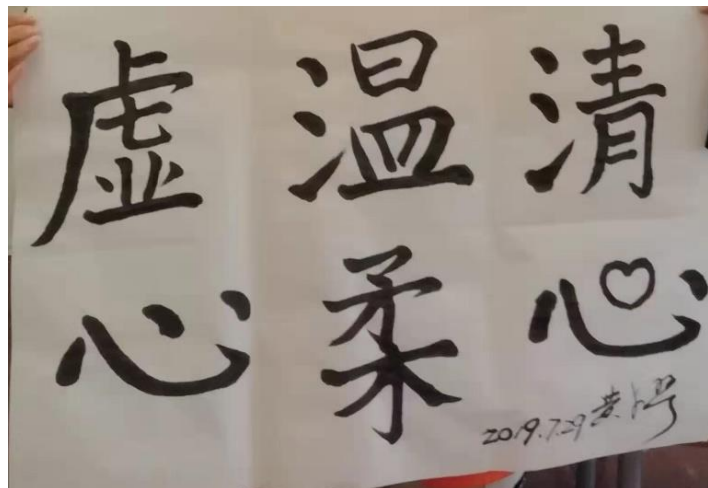 清心
温柔
虚心
2019.7.29